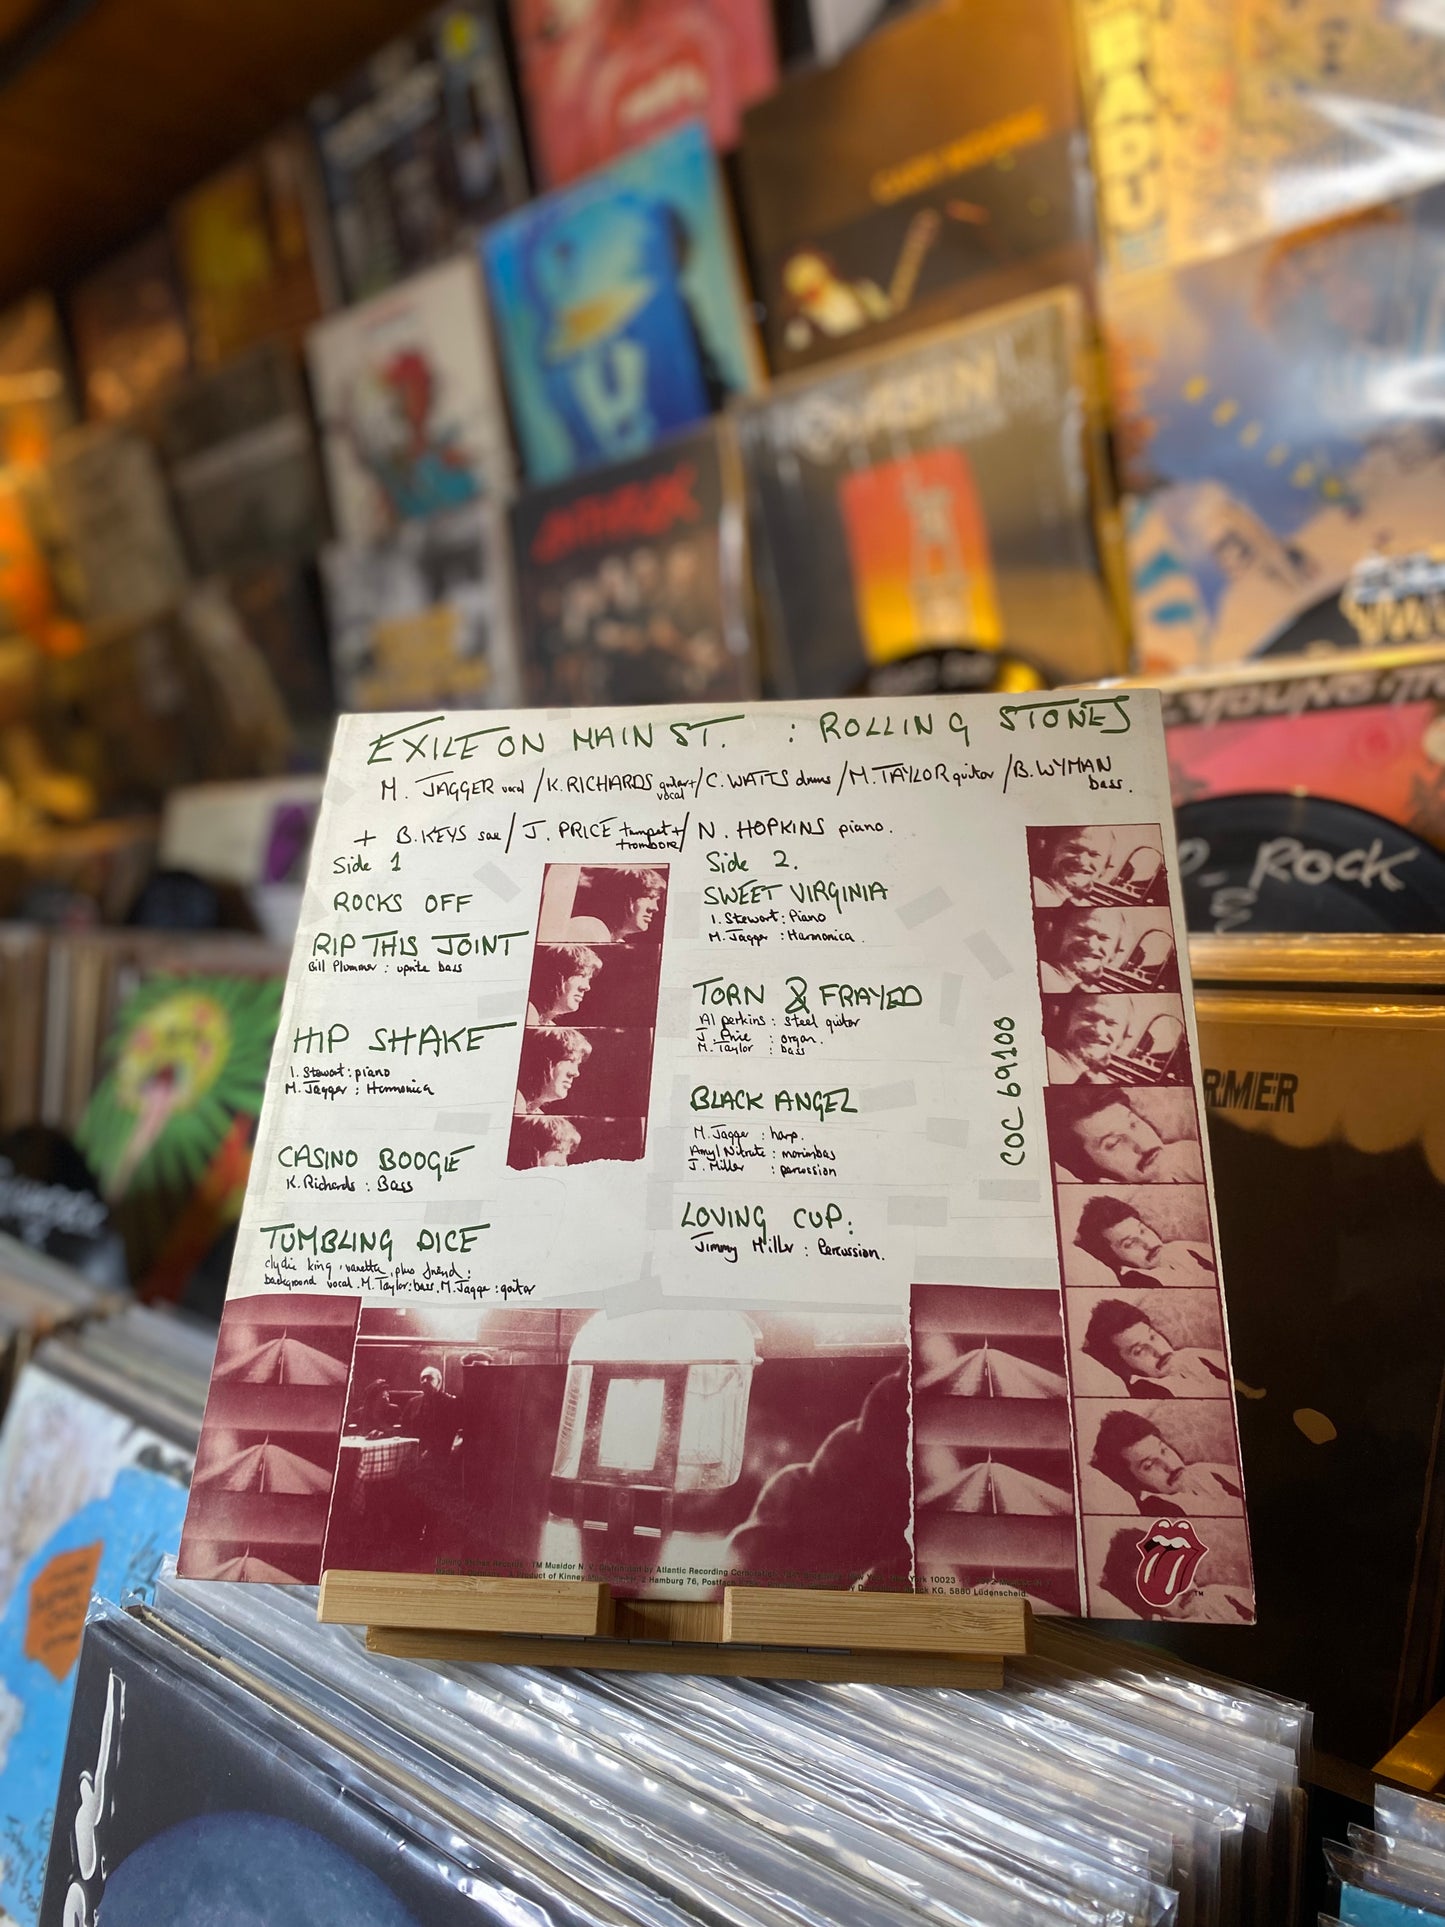 GARY MOORE
ANTHRAX
EXILE ON MAIN ST. : ROLLING STONES
M. JAGGER vocal / K. RICHARDS guitar + vocal / C. WATTS drums / M. TAYLOR guitar / B. WYMAN bass.
+ B. KEYS sax / J. PRICE trumpet + trombone / N. HOPKINS piano.
Side 1
ROCKS OFF
RIP THIS JOINT
Bill Plummer : uprite bass
HIP SHAKE
I. Stewart : piano
M. Jagger : Harmonica
CASINO BOOGIE
K. Richards : Bass
TUMBLING DICE
clydie king , vanetta , plus friend :
background vocal . M. Taylor : bass . M. Jagger : guitar
Side 2.
SWEET VIRGINIA
I. Stewart : Piano
M. Jagger : Harmonica .
TORN & FRAYED
Al perkins : steel guitar
J. Price : organ.
M. Taylor : bass
BLACK ANGEL
M. Jagger : harp.
Amyl Nitrate : marimbas
J. Miller : percussion
LOVING CUP.
Jimmy Miller : Percussion.
COC 69100
Rolling Stones Records TM Musidor N. V. Distributed by Atlantic Recording Corporation York 10023
Made in Germany Product of Kinney 2 Hamburg 76, Postfach KG. 5880 Lüdenscheid
TM
ROCK
RMER